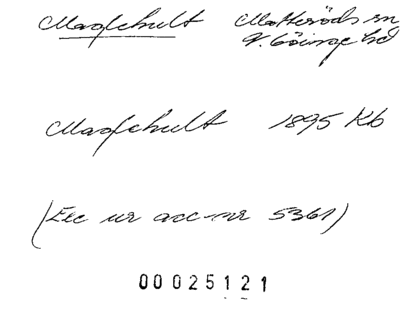 Maglehult Matteröds sn
V. Göinge hd
Maglehult 1895 Kb
(Exc ur acc-nr 5361)
00025121